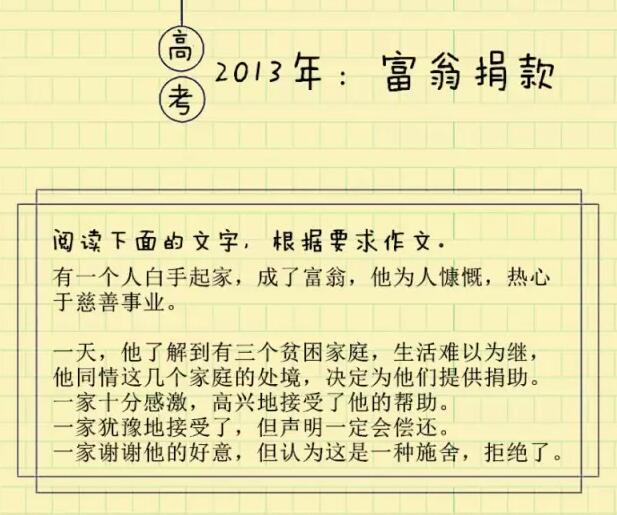 高考
2013年：富翁捐款
阅读下面的文字，根据要求作文。
有一个人白手起家，成了富翁，他为人慷慨，热心
于慈善事业。
一天，他了解到有三个贫困家庭，生活难以为继，
他同情这几个家庭的处境，决定为他们提供捐助。
一家十分感激，高兴地接受了他的帮助。
一家犹豫地接受了，但声明一定会偿还。
一家谢谢他的好意，但认为这是一种施舍，拒绝了。